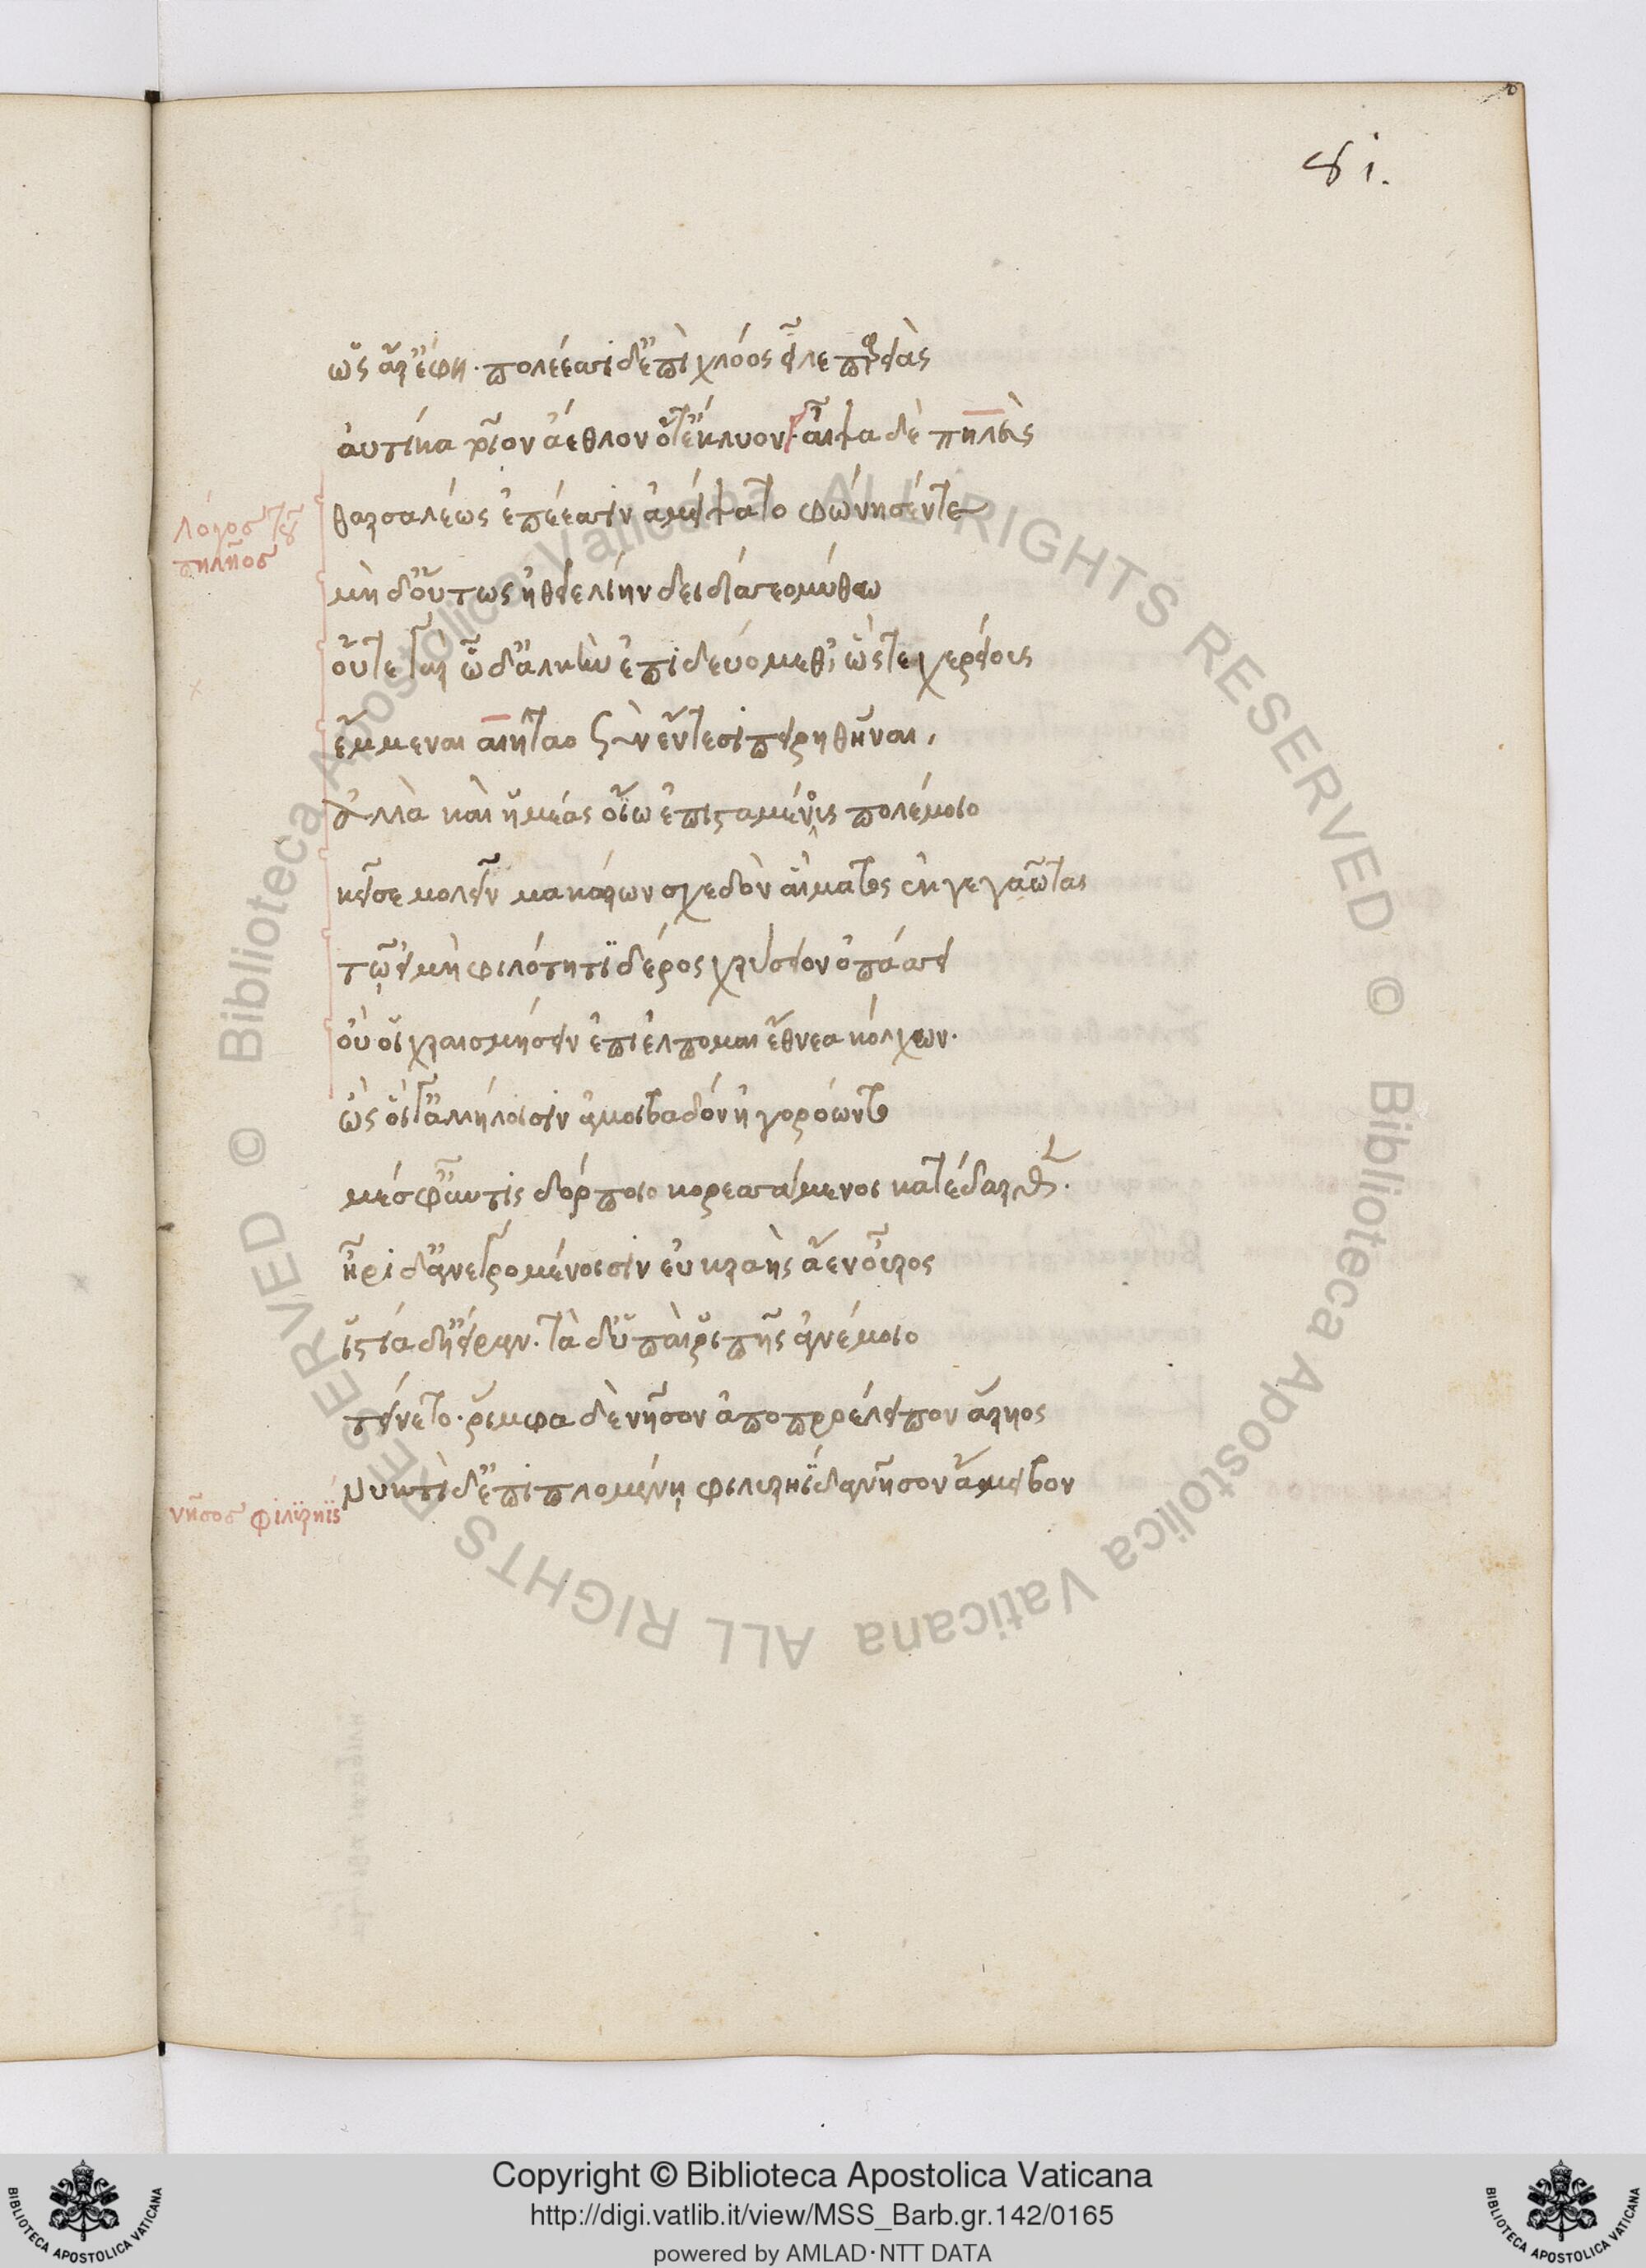 81.
ὣς ἄρ' ἔφη· πολέεσσι δ' ἐπὶ χλόος εἷλε παρειὰς
ἀυτίκα τοῖον ἄεθλον ὅτ' ἔκλυον· αἶψα δὲ πηλεὺς
θαρσαλέως ἐπέεσσιν ἀμείψατο φώνησέν τε
λόγος τοῦ
πηλῆος
μὴ δ' οὕτως ἠθεῖε λίην δειδίσσεο μύθω
οὔτε γὰρ ὧδ' ἀλκὴν ἐπιδευόμεθ' ὥς τε χερείους
ἔμμεναι αιήταο σὺν ἔντεσι πειρηθῆναι,
ἀλλὰ καὶ ἡμέας οἴω ἐπισταμένους πολέμοιο
κεῖσε μολεῖν μακάρων σχεδὸν αἵματος ἐκγεγαῶτας
τῶ εἰ μὴ φιλότητι δέρος χρύσειον ὀπάσσει
οὔ οἱ χραισμήσειν ἐπιέλπομαι ἔθνεα κόλχων·
ὣς οἵγ' ἀλλήλοισιν ἀμοιβαδὸν ἠγορόωντο
μέσφ' αὖτις δόρποιο κορεσσάμενοι κατέδαρθεν·
ἦρι δ' ἀνεγρομένοισιν εὐκραὴς ἄεν οὖρος
ἱστία δ' ἤειραν· τὰ δ' ὑπαὶ ῥιπῆς ἀνέμοιο
τείνετο· ῥίμφα δὲ νῆσον ἀποπροέλειπον ἄρηος
νυκτὶ δ' ἐπιπλομένη φιλυρηΐδα νῆσον ἄμειβον
νῆσος φιλυρηῒς
Copyright © Biblioteca Apostolica Vaticana
http://digi.vatlib.it/view/MSS_Barb.gr.142/0165
powered by AMLAD·NTT DATA
BIBLIOTECA APOSTOLICA VATICANA
BIBLIOTECA APOSTOLICA VATICANA
Biblioteca Apostolica Vaticana ALL RIGHTS RESERVED ©
Biblioteca Apostolica Vaticana ALL RIGHTS RESERVED ©